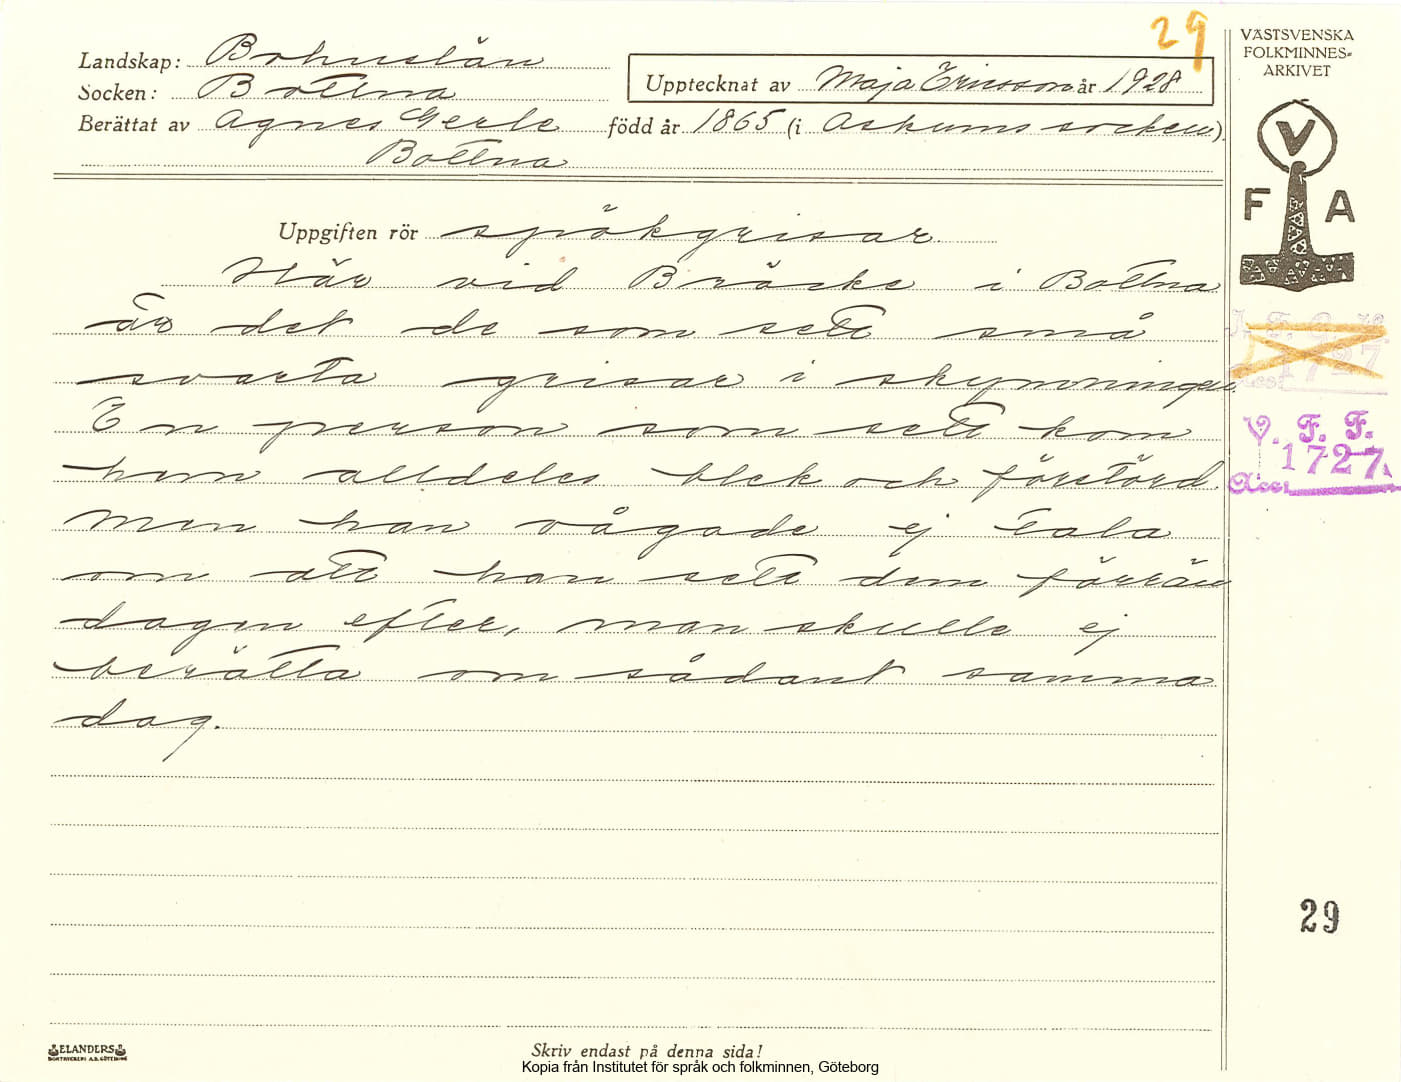 29
VÄSTSVENSKA
FOLKMINNES-
ARKIVET
Landskap: Bohuslän
Socken: Bottna
Upptecknat av Maja Ericsson år 1928
Berättat av Agnes Gerle född år 1865 (i Askums socken).
Bottna
V
F A
Uppgiften rör spökgrisar.
Här vid Bräcke i Bottna
är det de som sett små
svarta grisar i skymningen.
En person som sett kom
hem alldeles blek och förstörd.
Men han vågade ej tala
om att han sett dem förrän
dagen efter, man skulle ej
berätta om sådant samma
dag.
1727
V. F. F.
1727
Acc:
29
ELANDERS
BOKTRYCKERI A.B. GÖTEBORG
Skriv endast på denna sida!
Kopia från Institutet för språk och folkminnen, Göteborg